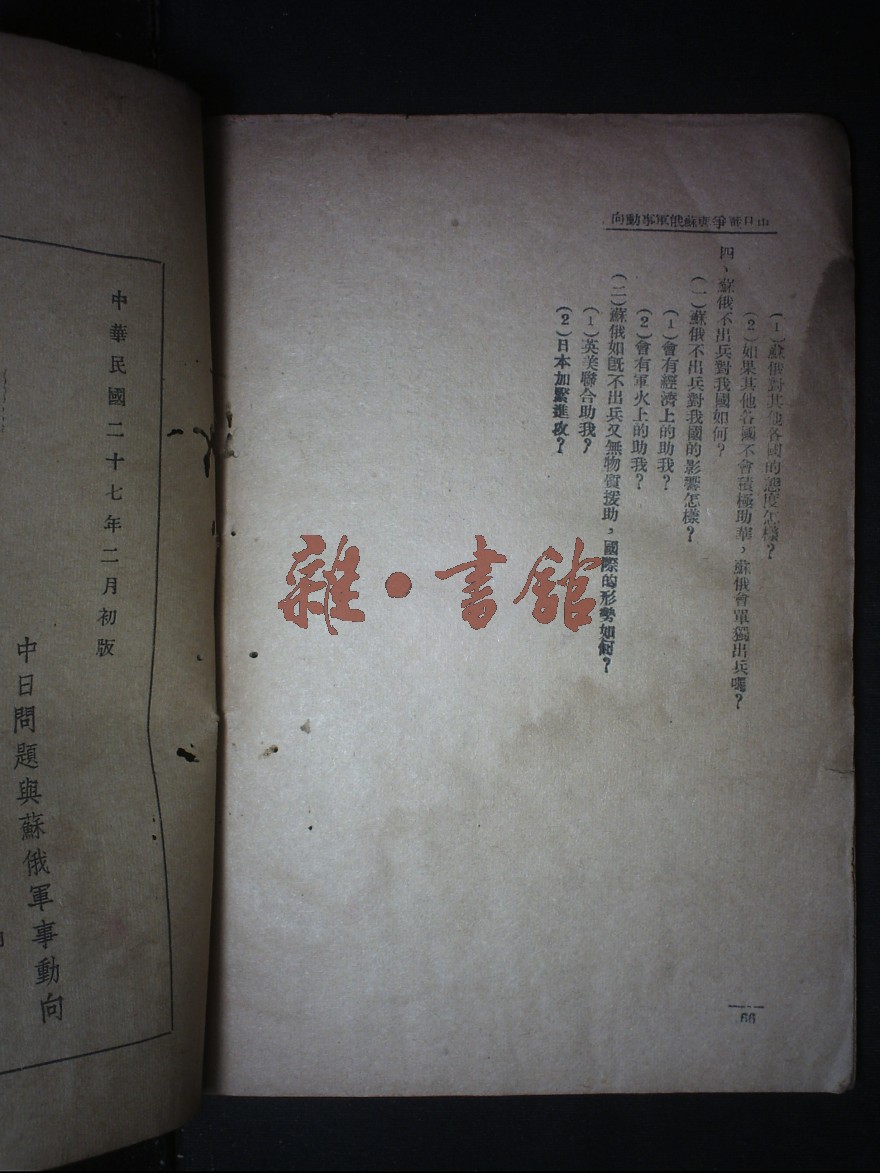 中日戰爭與蘇俄軍事動向
(1)蘇俄對其他各國的態度怎樣?
(2)如果其他各國不會積極助華,蘇俄會單獨出兵嗎?
四、蘇俄不出兵對我國如何?
(一)蘇俄不出兵對我國的影響怎樣?
(1)會有經濟上的助我?
(2)會有軍火上的助我?
(二)蘇俄如既不出兵又無物質援助,國際的形勢如何?
(1)英美聯合助我?
(2)日本加緊進攻?
66
雜·書館
中華民國二十七年二月初版
中日問題與蘇俄軍事動向